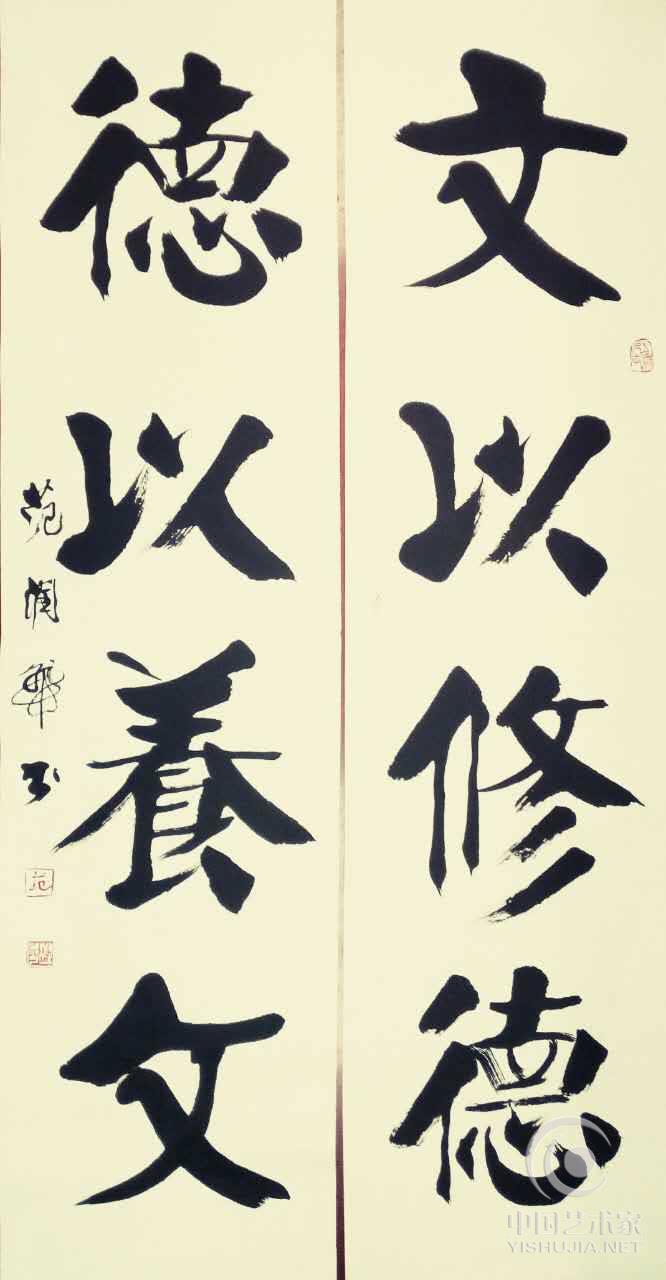 文以修德
德以養文
范润華书
范
中国艺术家
YISHUJIA.NET